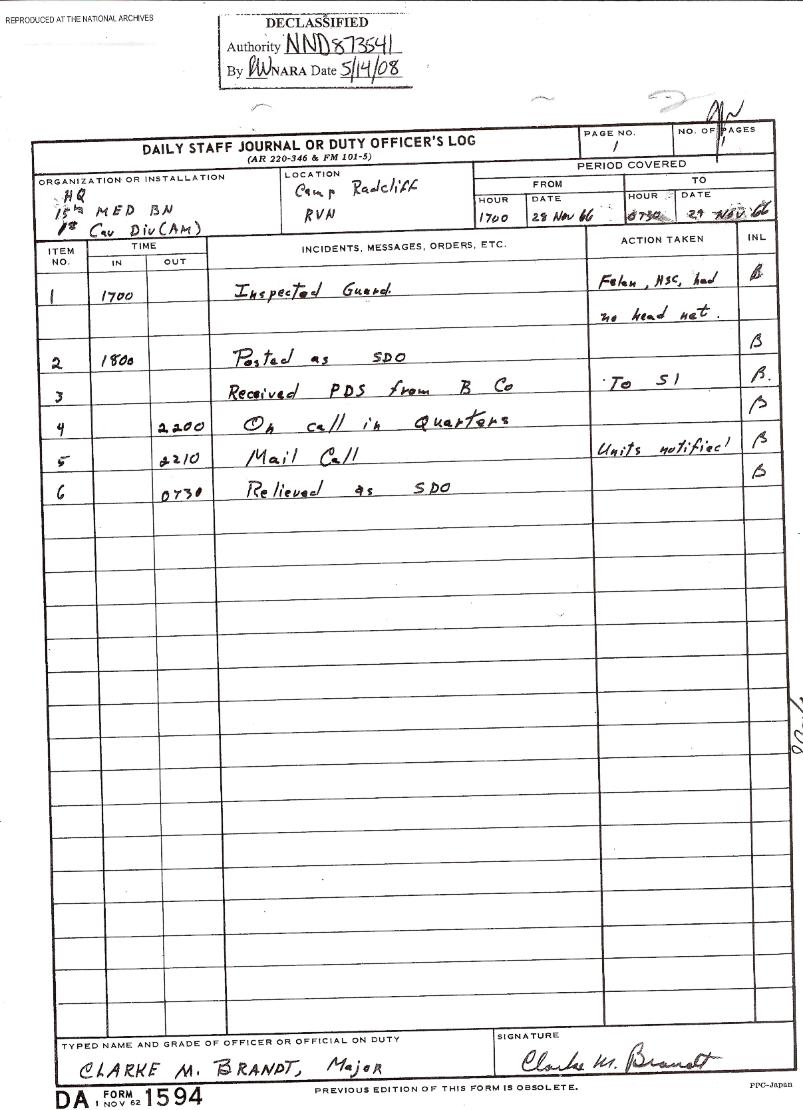 REPRODUCED AT THE NATIONAL ARCHIVES
DECLASSIFIED
Authority NND873541
By NARA Date 5/14/08
DAILY STAFF JOURNAL OR DUTY OFFICER'S LOG
(AR 220-346 & FM 101-5)
PAGE NO.
1
NO. OF PAGES
1
ORGANIZATION OR INSTALLATION
HQ
15th MED BN
1st Cav Div (AM)
LOCATION
Camp Radcliff
RVN
PERIOD COVERED
FROM
TO
HOUR DATE HOUR DATE
1700 28 Nov 66 0730 29 Nov 66
ITEM NO.
TIME
IN OUT
INCIDENTS, MESSAGES, ORDERS, ETC.
ACTION TAKEN
INL
1 1700 Inspected Guard. HSC, had B
no head net.
2 1800 Posted as SDO B
3 Received PDS from B Co To S1 B.
4 2200 On call in Quarters B
5 2210 Mail Call Units notified B
6 0730 Relieved as SDO B
TYPED NAME AND GRADE OF OFFICER OR OFFICIAL ON DUTY
CLARKE M. BRANDT, Major
SIGNATURE
Clarke M. Brandt
DA FORM 1594
1 NOV 62
PREVIOUS EDITION OF THIS FORM IS OBSOLETE.
PPC-Japan